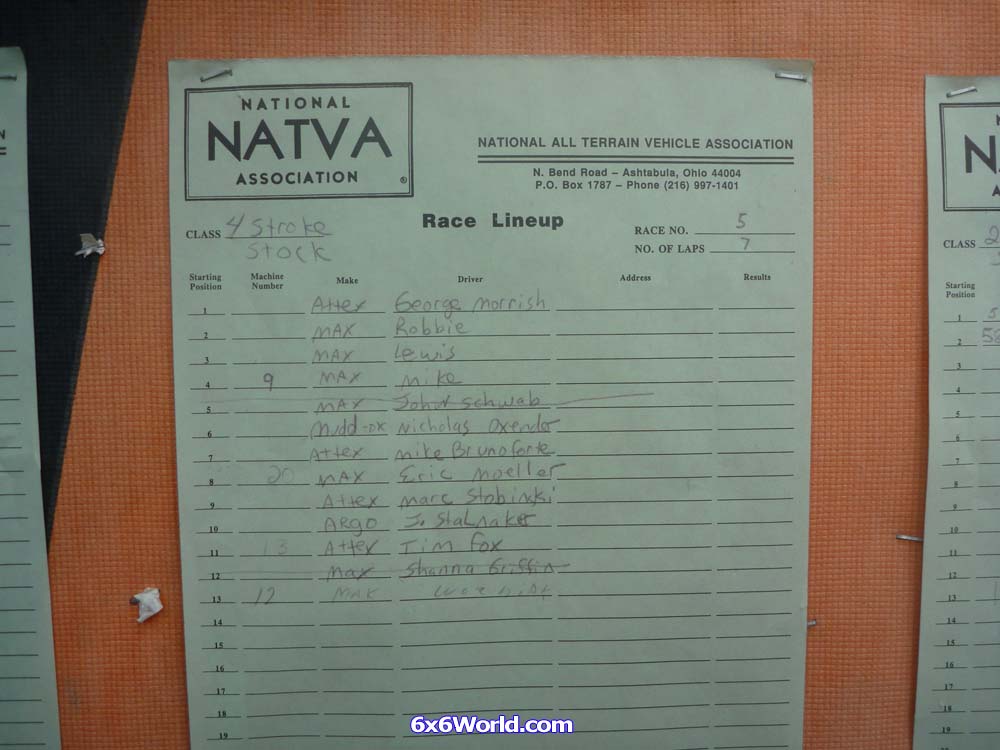 NATIONAL
NATVA
ASSOCIATION
®
NATIONAL ALL TERRAIN VEHICLE ASSOCIATION
N. Bend Road – Ashtabula, Ohio 44004
P.O. Box 1787 – Phone (216) 997-1401
Race Lineup
CLASS 4 Stroke
Stock
RACE NO. 5
NO. OF LAPS 7
Starting Position Machine Number Make Driver Address Results
1 Attex George Morrish
2 MAX Robbie
3 MAX Lewis
4 9 MAX Mike
5 MAX John Schwab
6 Mudd-ox Nicholas
7 Attex Mike Brunoforte
8 20 MAX Eric Moeller
9 Attex Marc Stobinski
10 ARGO J. Stalnaker
11 13 Attex Tim Fox
12 Max Shanna Griffin
13 12 MAX
14
15
16
17
18
19
CLASS 2
Starting
Position
1 5
2
3
4
5
6
7
8
9
10
11
12
13
14
15
16
17
18
6x6World.com